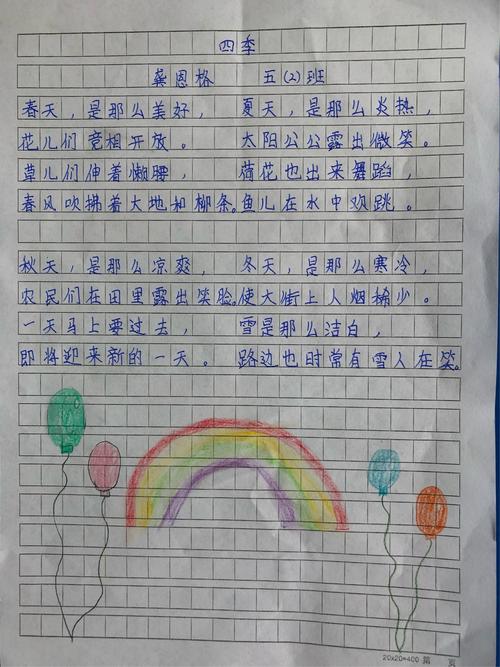 四季
龚恩格 五(2)班
春天，是那么美好，
花儿们竞相开放。
草儿们伸着懒腰，
春风吹拂着大地和柳条。
夏天，是那么炎热，
太阳公公露出微笑。
荷花也出来舞蹈，
鱼儿在水中欢跳。
秋天，是那么凉爽，
农民们在田里露出笑脸。
一天马上要过去，
即将迎来新的一天。
冬天，是那么寒冷，
使大街上人烟稀少。
雪是那么洁白，
路边也时常有雪人在笑。
20×20=400 第 页